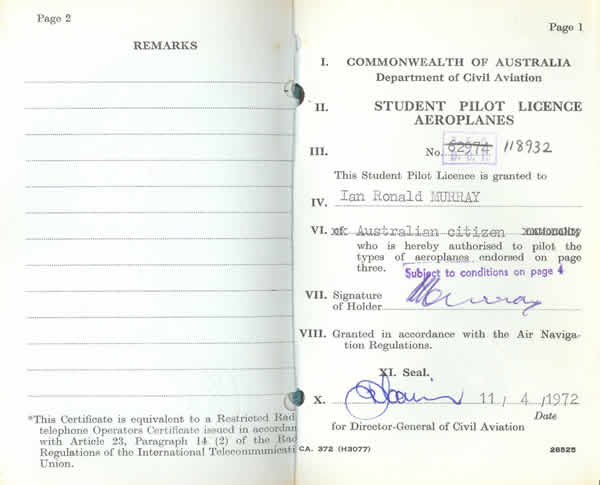 Page 2
REMARKS
*This Certificate is equivalent to a Restricted Rad
telephone Operators Certificate issued in accordan
with Article 23, Paragraph 14 (2) of the Rad
Regulations of the International Telecommunicati
Union.
Page 1
I. COMMONWEALTH OF AUSTRALIA
Department of Civil Aviation
II. STUDENT PILOT LICENCE
AEROPLANES
III. No. 62974 118932
This Student Pilot Licence is granted to
IV. Ian Ronald MURRAY
VI. of Australian citizen nationality
who is hereby authorised to pilot the
types of aeroplanes endorsed on page
three. Subject to conditions on page 4
VII. Signature
of Holder Murray
VIII. Granted in accordance with the Air Naviga-
tion Regulations.
XI. Seal.
X. 11 / 4 / 1972
Date
for Director-General of Civil Aviation
CA. 372 (H3077) 26525